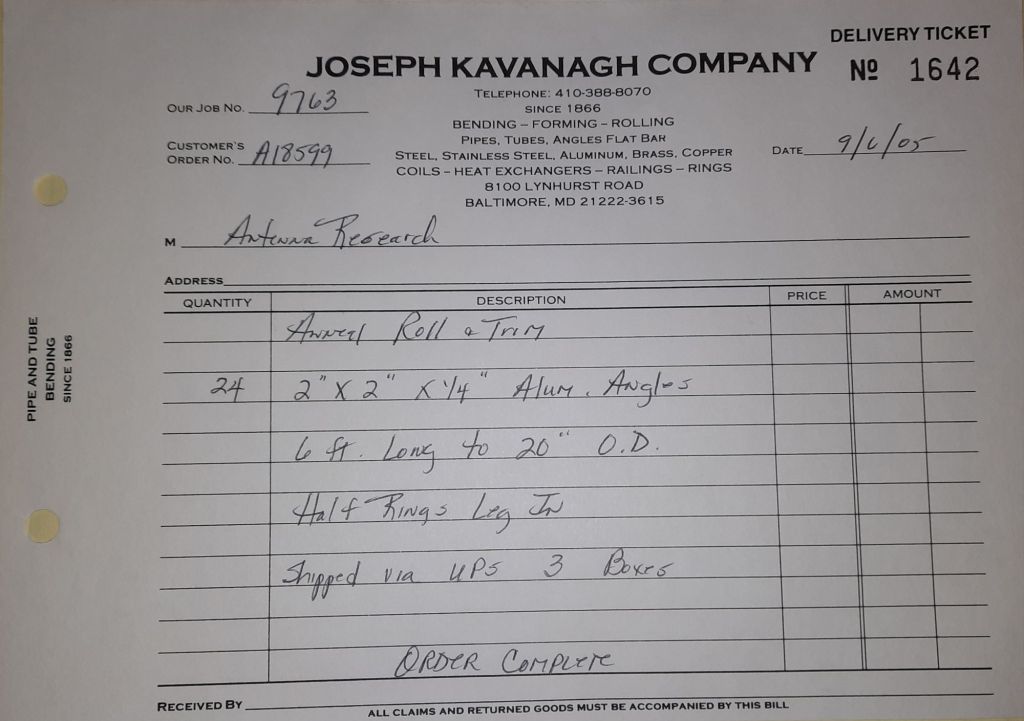 DELIVERY TICKET
JOSEPH KAVANAGH COMPANY
Nº 1642
TELEPHONE: 410-388-8070
OUR JOB NO. 9763
SINCE 1866
BENDING – FORMING – ROLLING
PIPES, TUBES, ANGLES FLAT BAR
CUSTOMER'S
ORDER NO. A18599
STEEL, STAINLESS STEEL, ALUMINUM, BRASS, COPPER
DATE 9/6/05
COILS – HEAT EXCHANGERS – RAILINGS – RINGS
8100 LYNHURST ROAD
BALTIMORE, MD 21222-3615
M Antenna Research
ADDRESS
QUANTITY DESCRIPTION PRICE AMOUNT
Anneal Roll & Trim
24 2" X 2" X 1/4" Alum. Angles
6 ft. Long to 20" O.D.
Half Rings Leg In
Shipped via UPS 3 Boxes
ORDER COMPLETE
RECEIVED BY
ALL CLAIMS AND RETURNED GOODS MUST BE ACCOMPANIED BY THIS BILL
PIPE AND TUBE
BENDING
SINCE 1866